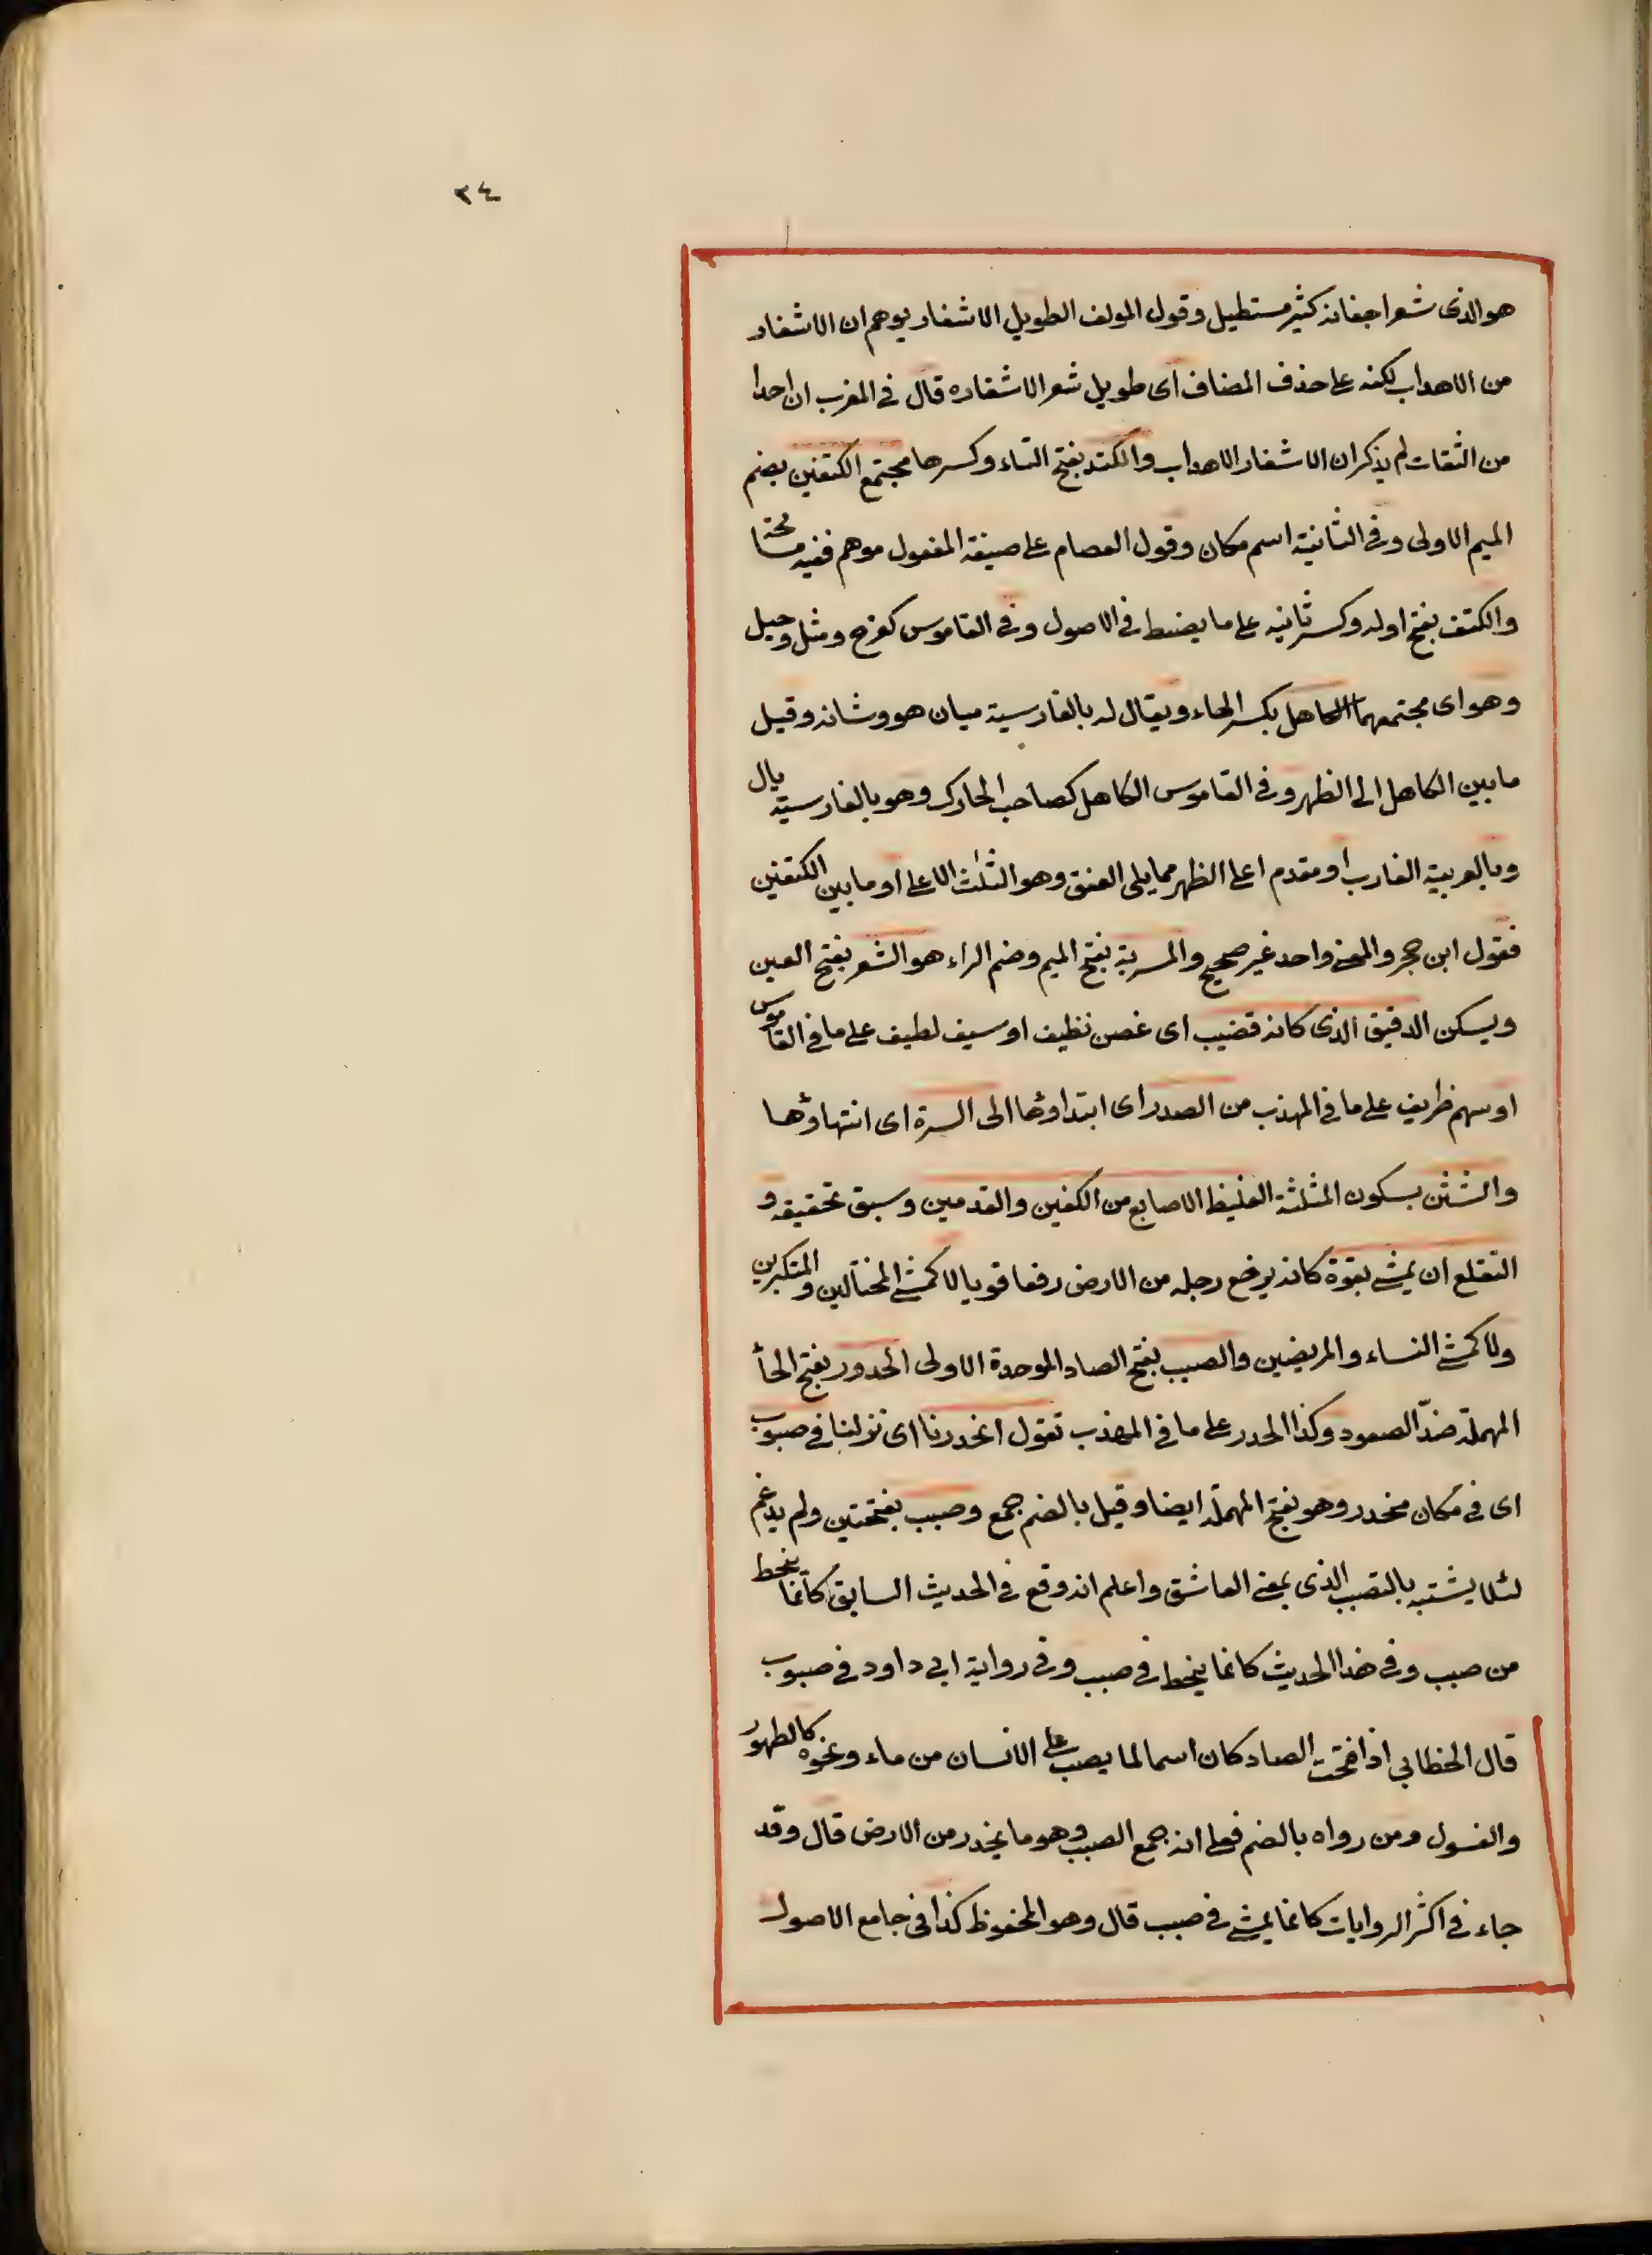 ٢٤
هو الذى شعر اجفانه كثير مستطيل وقول المولف الطويل الاشفار يوهم ان الاشفار
من الاهداب لكنه على حذف المضاف اى طويل شعر الاشفاره قال فى المغرب ان احدا
من الثقات لم يذكر ان الاشفار الاهداب والكتد بفتح التاء وكسرها مجتمع الكتفين بضم
الميم الاولى وفى الثانية اسم مكان وقول العصام على صيغة المفعول موهم ففيه مسامحة
والكتف بفتح اوله وكسر ثانيه على ما يضبط فى الاصول وفى القاموس كفرح ومثل وحبل
وهو اى مجتمعهما الكاهل بكسر الهاء ويقال له بالفارسية ميان هو وشانه وقيل
ما بين الكاهل الى الظهر وفى القاموس الكاهل كصاحب الحارك وهو بالفارسية يال
وبالعربية الغارب او مقدم اعلى الظهر مما يلى العنق وهو الثلث الاعلى او ما بين الكتفين
فقول ابن حجر والمعنى واحد غير صحيح والمسربة بفتح الميم وضم الراء هو الشعر بفتح العين
ويسكن الدقيق الذى كانه قضيب اى غصن نظيف او سيف لطيف على ما فى القاموس
او سهم ظريف على ما فى المهذب من الصدر اى ابتداؤها الى السرة اى انتهاؤها
والشثن بسكون المثلثة الغليظ الاصابع من الكفين والقدمين وسبق تحقيقه و
التقلع ان يمشى بقوة كانه يرفع رجله من الارض رفعا قويا لا كمشى المختالين والمتكبرين
ولا كمشى النساء والمريضين والصبب بفتح الصاد الموحدة الاولى الحدور بفتح الحأ
المهملة ضدّ الصعود وكذا الحدر على ما فى المهذب تقول انحدرنا اى نزلنا فى صبوب
اى فى مكان منحدر وهو بفتح المهملة ايضا وقيل بالضم جمع وصبب بفتحتين ولم يدغم
لئلا يشتبه بالصب الذى بمعنى العاشق واعلم انه وقع فى الحديث السابق كأنما ينحط
من صبب وفى هذا الحديث كانما ينحط فى صبب وفى رواية ابى داود فى صبوب
قال الخطابي اذا فتحت الصاد كان اسما لما يصب على الانسان من ماء ونحوه كالطهور
والغسول ومن رواه بالضم فعلى انه جمع الصبب وهو ما ينحدر من الارض قال وقد
جاء فى اكثر الروايات كانما يمشى فى صبب قال وهو المحفوظ كذا فى جامع الاصول